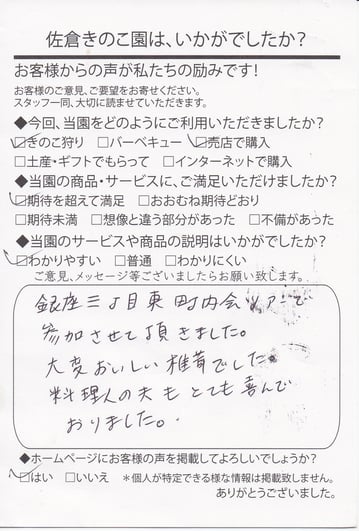 佐倉きのこ園は、いかがでしたか?
お客様からの声が私たちの励みです!
お客様のご意見、ご要望をお寄せください。
スタッフ一同、大切に読ませていただきます。
◆今回、当園をどのようにご利用いただきましたか?
☑きのこ狩り □バーベキュー ☑売店で購入
□土産・ギフトでもらって □インターネットで購入
◆当園の商品・サービスに、ご満足いただけましたか?
☑期待を超えて満足 □おおむね期待どおり
□期待未満 □想像と違う部分があった □不備があった
◆当園のサービスや商品の説明はいかがでしたか?
☑わかりやすい □普通 □わかりにくい
ご意見、メッセージ等ございましたらお願い致します。
銀座三丁目東町内会ツアーで
参加させて頂きました。
大変おいしい椎茸でした。
料理人の夫もとても喜んで
おりました。
◆ホームページにお客様の声を掲載してよろしいでしょうか?
☑はい □いいえ *個人が特定できる様な情報は掲載致しません。
ありがとうございました。